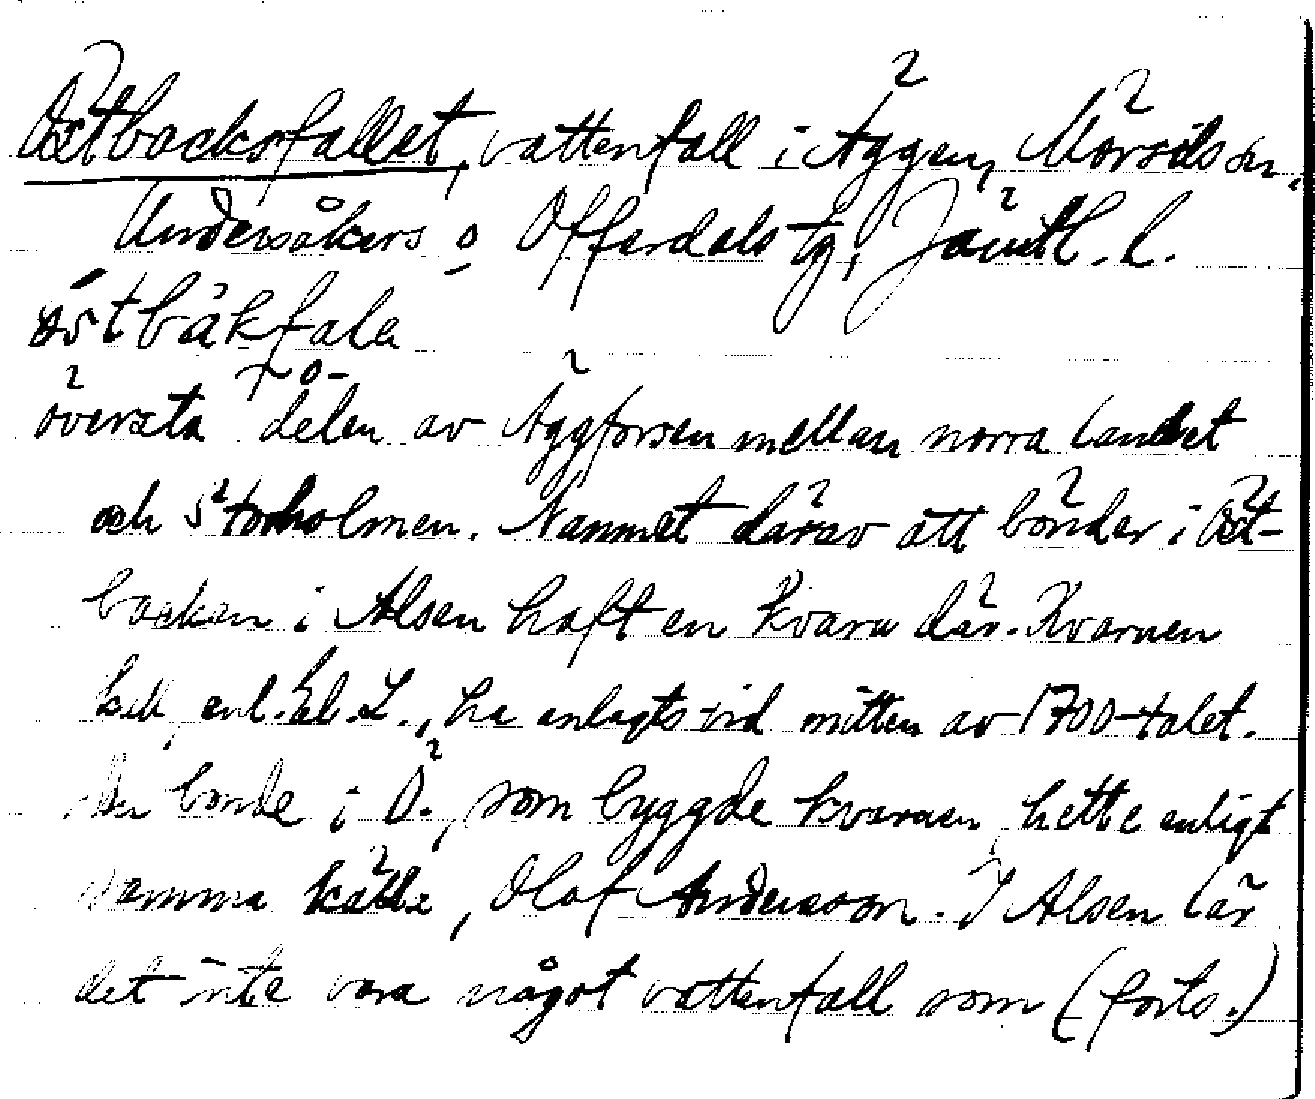 Östbacksfallet, vattenfall i Äggen, Mörsils sn,
Undersåkers o Offerdals tg, Jämtl. l.
östbäkfalα
översta delen av Äggforsen mellan norra landet
och Storholmen. Namnet därav att bönder i Öst-
backen i Alsen haft en kvarn där. Kvarnen
skall, enl. El. L., ha anlagts vid mitten av 1700-talet.
Den bonde i Ö., som byggde kvarnen, hette enligt
samma källa, Olof Andersson. I Alsen lär
det inte vara något vattenfall som (forts.)